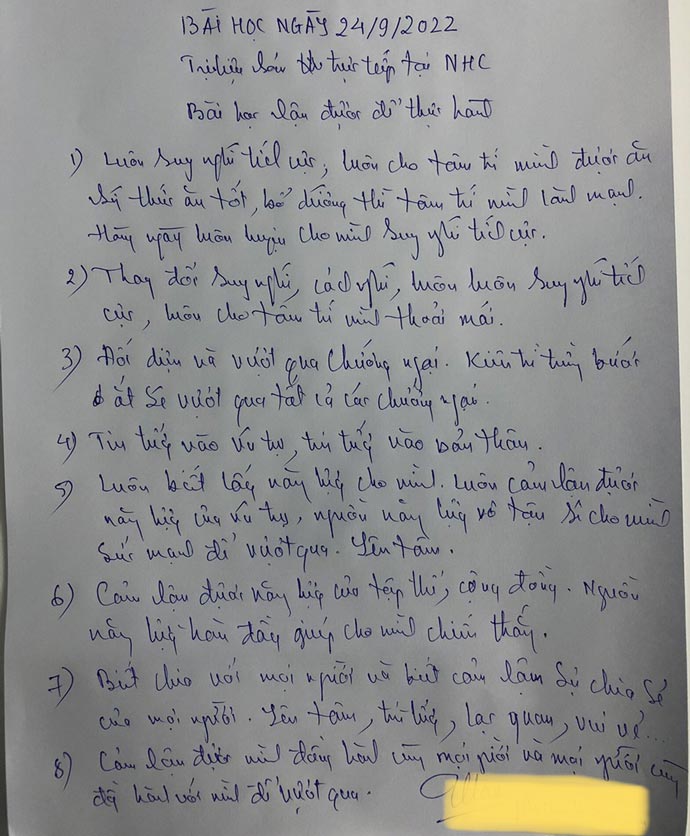 BÀI HỌC NGÀY 24/9/2022
Trị liệu sáu trực tiếp tại NHC
Bài học nhận được để thực hành
1) Luôn suy nghĩ tích cực, luôn cho tâm trí mình được ăn
thức ăn tốt, bổ dưỡng thì tâm trí mình lành mạnh.
Hàng ngày luôn luyện cho mình suy nghĩ tích cực.
2) Thay đổi suy nghĩ, cách nghĩ, luôn luôn suy nghĩ tích
cực, luôn cho tâm trí mình thoải mái.
3) Đối diện và vượt qua chướng ngại. Kiên trì từng bước
ắt sẽ vượt qua tất cả các chướng ngại.
4) Tin tưởng vào vũ trụ, tin tưởng vào bản thân.
5) Luôn biết lấy năng lượng cho mình. Luôn cảm nhận được
năng lượng của vũ trụ, nguồn năng lượng vô tận sẽ cho mình
sức mạnh để vượt qua. Yên tâm.
6) Cảm nhận được năng lượng của tập thể, cộng đồng. Nguồn
năng lượng tràn đầy giúp cho mình chiến thắng.
7) Biết chia với mọi người và biết cảm nhận sự chia sẻ
của mọi người. Yên tâm, tin tưởng, lạc quan, vui vẻ...
8) Cảm nhận được mình đồng hành cùng mọi người và mọi người cùng
đồng hành với mình để vượt qua.